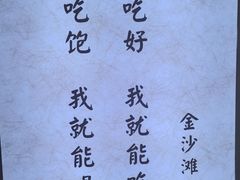 吃饱 我就能
吃好 我就能
金沙滩